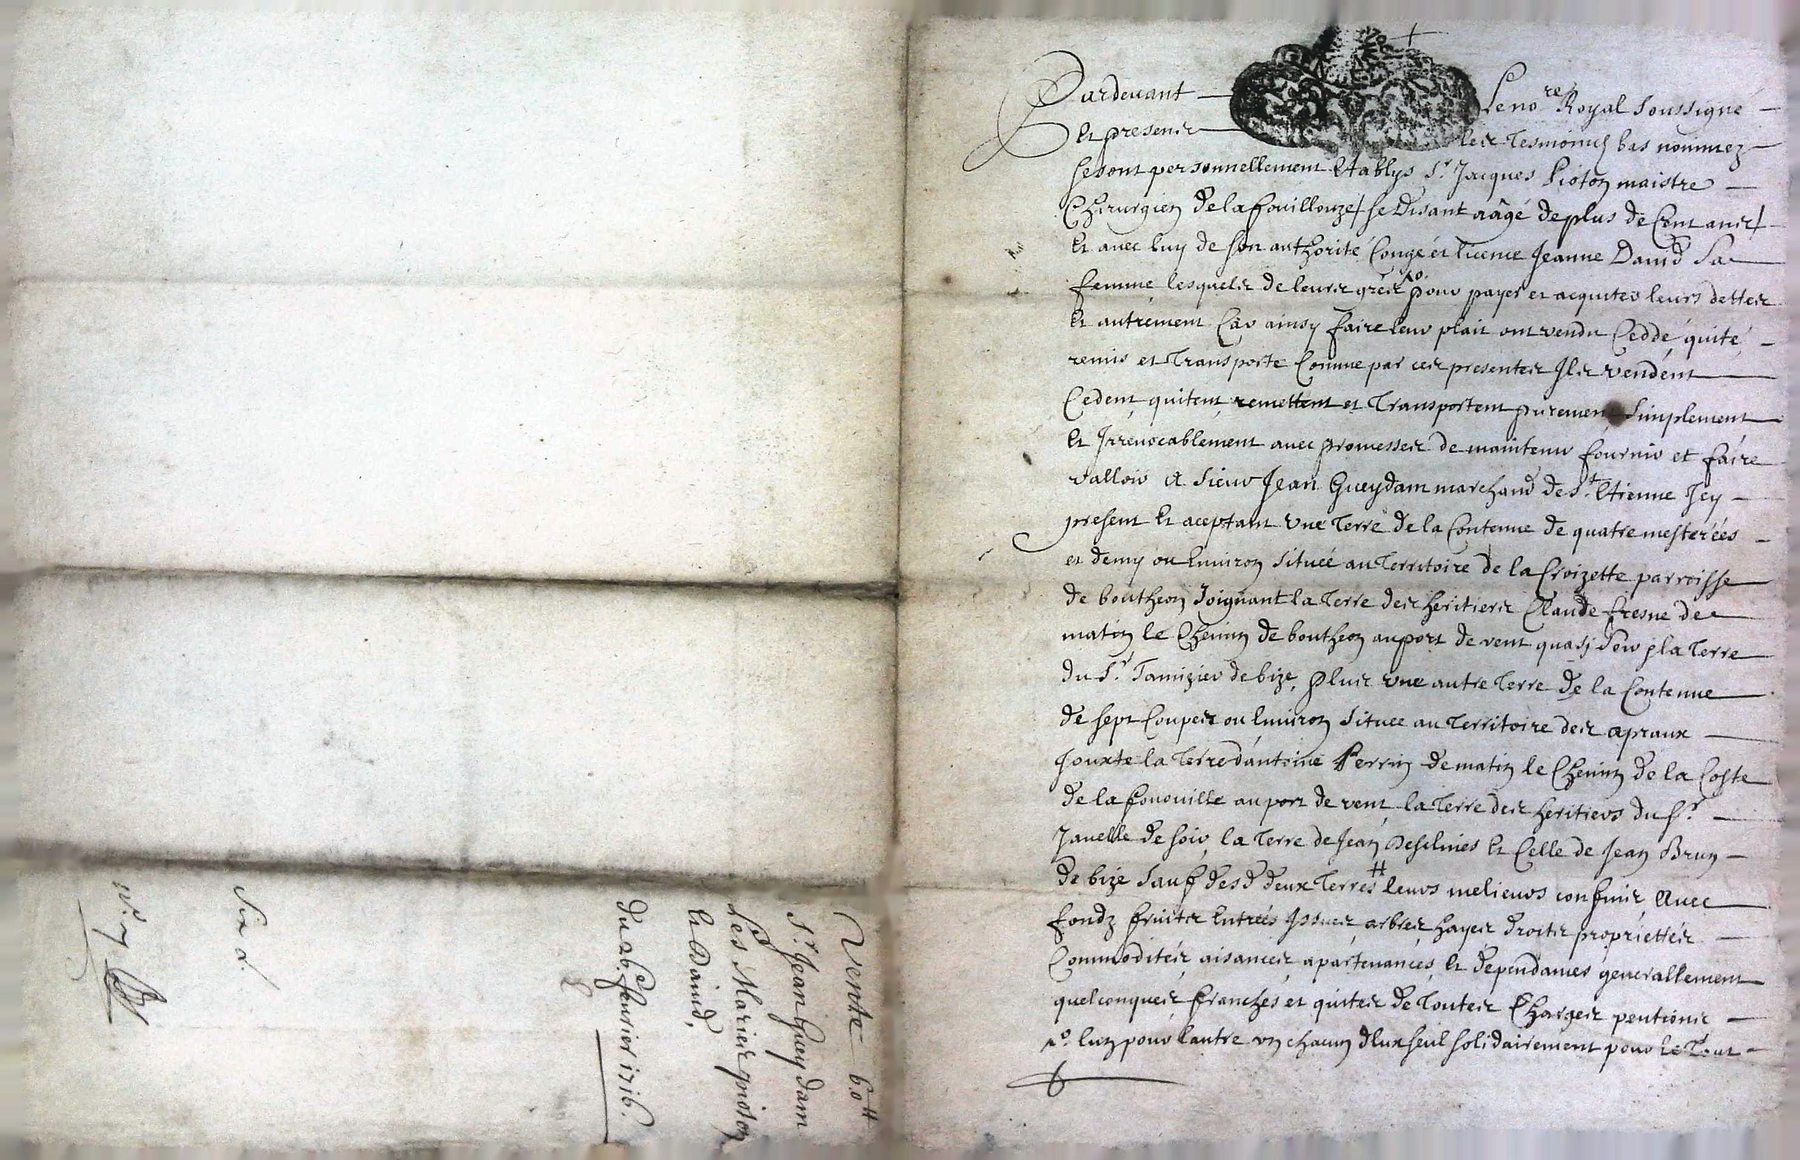 Pardevant Le no.re Royal soussigné
Et presents les Tesmoings bas nommez
se sont personnellement Etablys S.r Jacques Pioton maistre
Chirurgien de la fouillouze / se disant aâgé de plus de Cent ans /
Et avec luy de son authorité Congé et licence Jeanne David sa
femme lesquels de leurs grés pour payer et acquiter leurs dettes
Et autrement Car ainsy faire leur plait ont vendu Ceddé quité
remis et Transporté Comme par ces presentes Ils vendent
Cedent quitent remettent et Transportent purement simplement
Et Irrevocablement avec promesses de maintenir fournir et faire
valloir A sieur Jean Gueydam marchand de S.t Etienne Icy
present Et aceptant une Terre de la Contenue de quatre mesterées
et demy ou Environ située au Territoire de la Croizette parroisse
de boutheon Joignant la Terre des heritiers Claude fresne de
matin le Chemin de boutheon au port de vent quasi soir la Terre
du S.r Tamizier de bize, Plus une autre Terre de la Contenue
de sept Coupes ou Environ située au Territoire des apraux
Jouxte la Terre d'antoine Perrin de matin le Chemin de la Coste
de la fonouille au port de vent la Terre des heritiers du S.r
Javelle de soir la Terre de Jean Deselines Et Celle de Jean Brun
de bize Sauf desd deux Terres leurs melieurs confins Avec
fondz fruits Entrées Issues arbres hayes droits proprietés
Commodités aisances apartenances Et dependances generallement
quelconques franches et quites de Toutes Charges pentions
lun pour lautre un chacun deux seul solidairement pour le Tout
Vente 60#
S.r Jean Gueydam
Les Maries pioton
Et David,
du 26.e fevrier 1716.